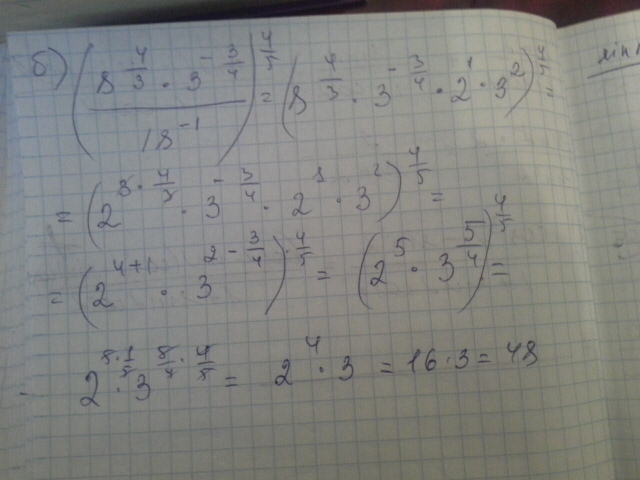 б) (8^(4/3) · 3^(-3/4) / 18^(-1))^(4/5) = (8^(4/3) · 3^(-3/4) · 2^1 · 3^2)^(4/5) =
= (2^(3·4/3) · 3^(-3/4) · 2^1 · 3^2)^(4/5) =
= (2^(4+1) · 3^(2-3/4))^(4/5) = (2^5 · 3^(5/4))^(4/5) =
2^(5·4/5) · 3^(5/4·4/5) = 2^4 · 3 = 16·3 = 48